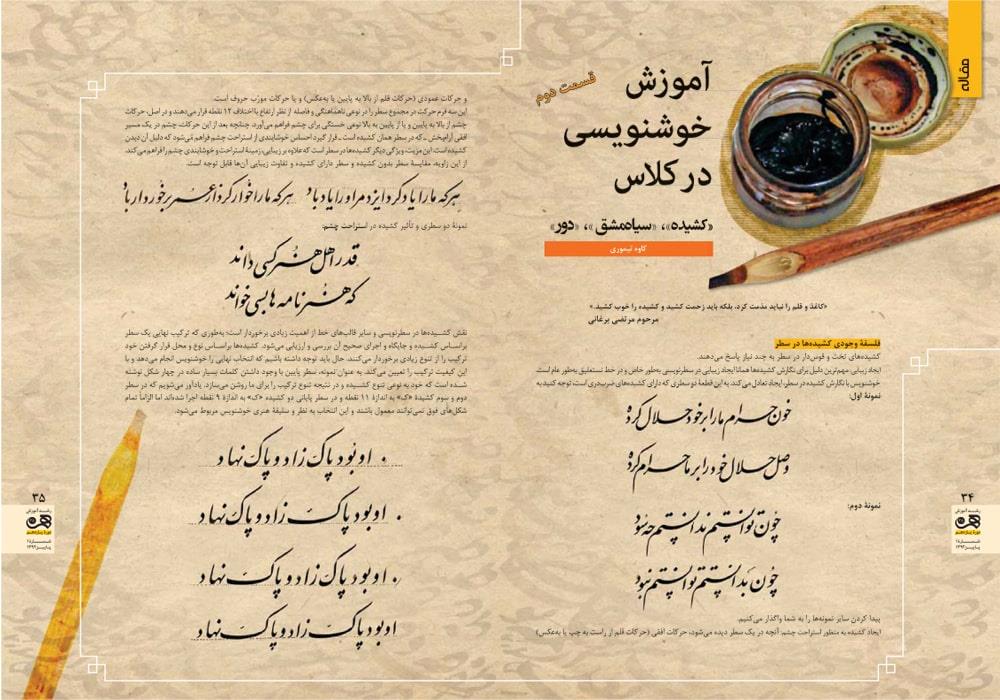 مقاله
آموزش
خوشنویسی
در کلاس
قسمت دوم
«کشیده»، «سیاه‌مشق»، «دور»
کاوه تیموری
«کاغذ و قلم را نباید مذمت کرد، بلکه باید زحمت کشید و کشیده را خوب کشید.»
مرحوم مرتضی برغانی
فلسفهٔ وجودی کشیده‌ها در سطر
کشیده‌های تخت و قوس‌دار در سطر به چند نیاز پاسخ می‌دهند.
ایجاد زیبایی: مهم‌ترین دلیل برای نگارش کشیده‌ها همانا ایجاد زیبایی در سطرنویسی به‌طور خاص و در خط نستعلیق به‌طور عام است.
خوشنویس با نگارش کشیده در سطر، ایجاد تعادل می‌کند. به این قطعهٔ دو سطری که دارای کشیده‌های ضربدری است، توجه کنید به
نمونهٔ اول:
خون حرام ما را بر خود حلال کرده
وصل حلال خود را بر ما حرام کرده
نمونهٔ دوم:
چون توانستم ندانستم چه سود
چون بدانستم توانستم نبود
پیدا کردن سایر نمونه‌ها را به شما واگذار می‌کنیم.
ایجاد کشیده به منظور استراحت چشم: آنچه در یک سطر دیده می‌شود، حرکات افقی (حرکات قلم از راست به چپ یا به‌عکس)
۳۴
رشد آموزش
هنر
دورهٔ یازدهم
شمارهٔ ۱
پاییز ۱۳۹۲
و حرکات عمودی (حرکات قلم از بالا به پایین یا به‌عکس) و یا حرکات مورب حروف است.
این سه فرم حرکت در مجموع سطر را در نوعی ناهماهنگی و فاصله از نظر ارتفاع با اختلاف ۱۲ نقطه قرار می‌دهند و در اصل، حرکات
چشم از بالا به پایین و یا از پایین به بالا نوعی خستگی برای چشم فراهم می‌آورد. چنانچه بعد از این حرکات، چشم در یک مسیر
افقی آرام‌بخش ـ که در سطر همان کشیده است ـ قرار گیرد احساس خوشایندی از استراحت چشم فراهم می‌شود که دلیل آن دیدن
کشیده است. این مزیت، ویژگی دیگر کشیده‌ها در سطر است که علاوه بر زیبایی، زمینهٔ استراحت و خوشایندی چشم را فراهم می‌کند.
از این زاویه، مقایسهٔ سطر بدون کشیده و سطر دارای کشیده و تفاوت زیبایی آن‌ها قابل توجه است.
هر که ما را یاد کرد ایزد مر او را یاد باد هر که ما را خوار کرد از عمر برخوردار باد
نمونهٔ دو سطری و تأثیر کشیده در استراحت چشم:
قدر اهل هنر کسی داند
که هنر نامه ها بسی خواند
نقش کشیده‌ها در سطرنویسی و سایر قالب‌های خط از اهمیت زیادی برخوردار است؛ به‌طوری که ترکیب نهایی یک سطر
براساس کشیده و جایگاه و اجرای صحیح آن بررسی و ارزیابی می‌شود. کشیده‌ها براساس نوع و محل قرار گرفتن خود
ترکیب را از تنوع زیادی برخوردار می‌کنند. حال باید توجه داشته باشیم که انتخاب نهایی را خوشنویس انجام می‌دهد و با
این کیفیت ترکیب را تعیین می‌کند. به عنوان نمونه، سطر پایین با وجود داشتن کلمات بسیار ساده در چهار شکل نوشته
شده است که خود به نوعی تنوع کشیده و در نتیجه تنوع ترکیب را برای ما روشن می‌سازد. یادآور می‌شویم که در سطر
دوم و سوم کشیدهٔ «ک» به اندازهٔ ۱۱ نقطه و در سطر پایانی دو کشیده «ک» به اندازهٔ ۹ نقطه اجرا شده‌اند اما الزاماً تمام
شکل‌های فوق نمی‌توانند معمول باشند و این انتخاب به نظر و سلیقهٔ هنری خوشنویس مربوط می‌شود.
او بود پاک زاد و پاک نهاد
او بود پاک زاد و پاک نهاد
او بود پاک زاد و پاک نهاد
او بود پاک زاد و پاک نهاد
۳۵
رشد آموزش
هنر
دورهٔ یازدهم
شمارهٔ ۱
پاییز ۱۳۹۲